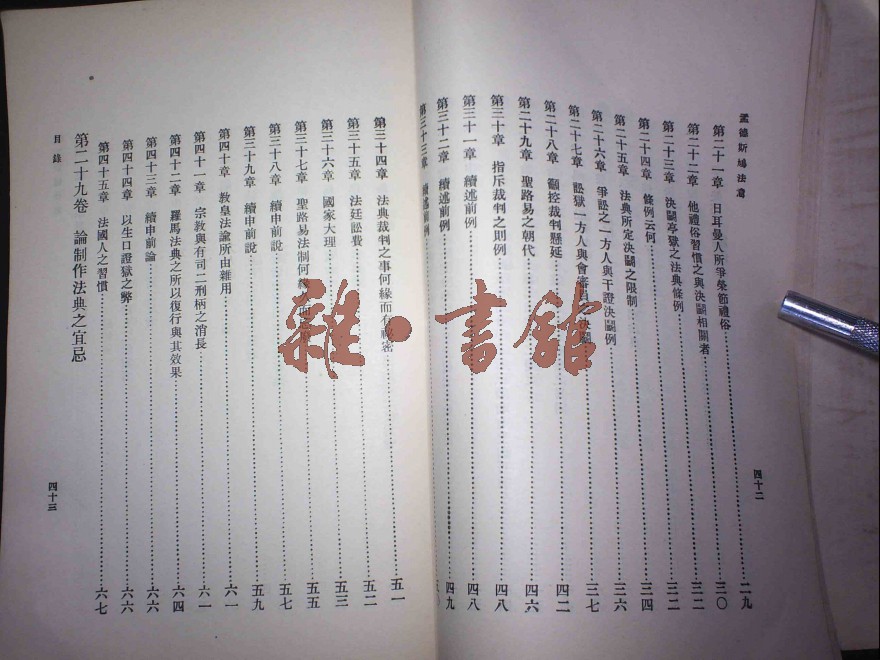 孟德斯鳩法意
第二十一章 日耳曼人所爭榮節禮俗……二九
第二十二章 他禮俗習慣之與決鬭相關者……三〇
第二十三章 決鬭亭獄之法典條例……三二
第二十四章 條例云何……三二
第二十五章 法典所定決鬭之限制……三四
第二十六章 爭訟之一方人與干證決鬭例……三六
第二十七章 訟獄一方人與會審員之決鬭……三七
第二十八章 籲控裁判懸延……四二
第二十九章 聖路易之朝代……四六
第三十章 指斥裁判之則例……四八
第三十一章 續述前例……四八
第三十二章 續述前例……四九
第三十三章 續述前例……五
四十二
第三十四章 法典裁判之事何緣而有祕密……五一
第三十五章 法廷訟費……五二
第三十六章 國家大理……五三
第三十七章 聖路易法制何緣而……五五
第三十八章 續申前說……五七
第三十九章 續申前說……五九
第四十章 教皇法諭所由雜用……六一
第四十一章 宗教與有司二刑柄之消長……六一
第四十二章 羅馬法典之所以復行與其效果……六四
第四十三章 續申前論……六六
第四十四章 以生口證獄之弊……六六
第四十五章 法國人之習慣……六七
第二十九卷 論制作法典之宜忌
目錄
四十三
雜·書館